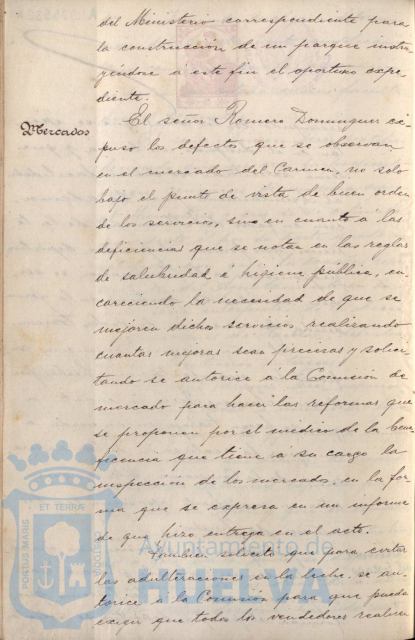 del Ministerio correspondiente para
la construcción de un parque instru
yéndose á este fin el oportuno expe
diente.
Mercados
El señor Romero Dominguez ex
puso los defectos que se observan
en el mercado del Carmen, no solo
bajo el punto de vista de buen orden
de los servicios, sino en cuanto á las
deficiencias que se notan en las reglas
de salubridad é higiene pública, en
careciendo la necesidad de que se
mejoren dichos servicios realizando
cuantas mejoras sean precisas y solici
tando se autorice á la Comisión de
mercado para hacer las reformas que
se proponen por el medico de la bene
ficencia que tiene á su cargo la
inspección de los mercados, en la for
ma que se expresa en un informe
de que hizo entrega en el acto.
Tambien solicitó que para evitar
las adulteraciones en la leche, se au
torice á la Comisión para que pueda
exigir que todos los vendedores
PORTUS MARIS ET TERRÆ CUSTODIA
Ayuntamiento de
HUELVA